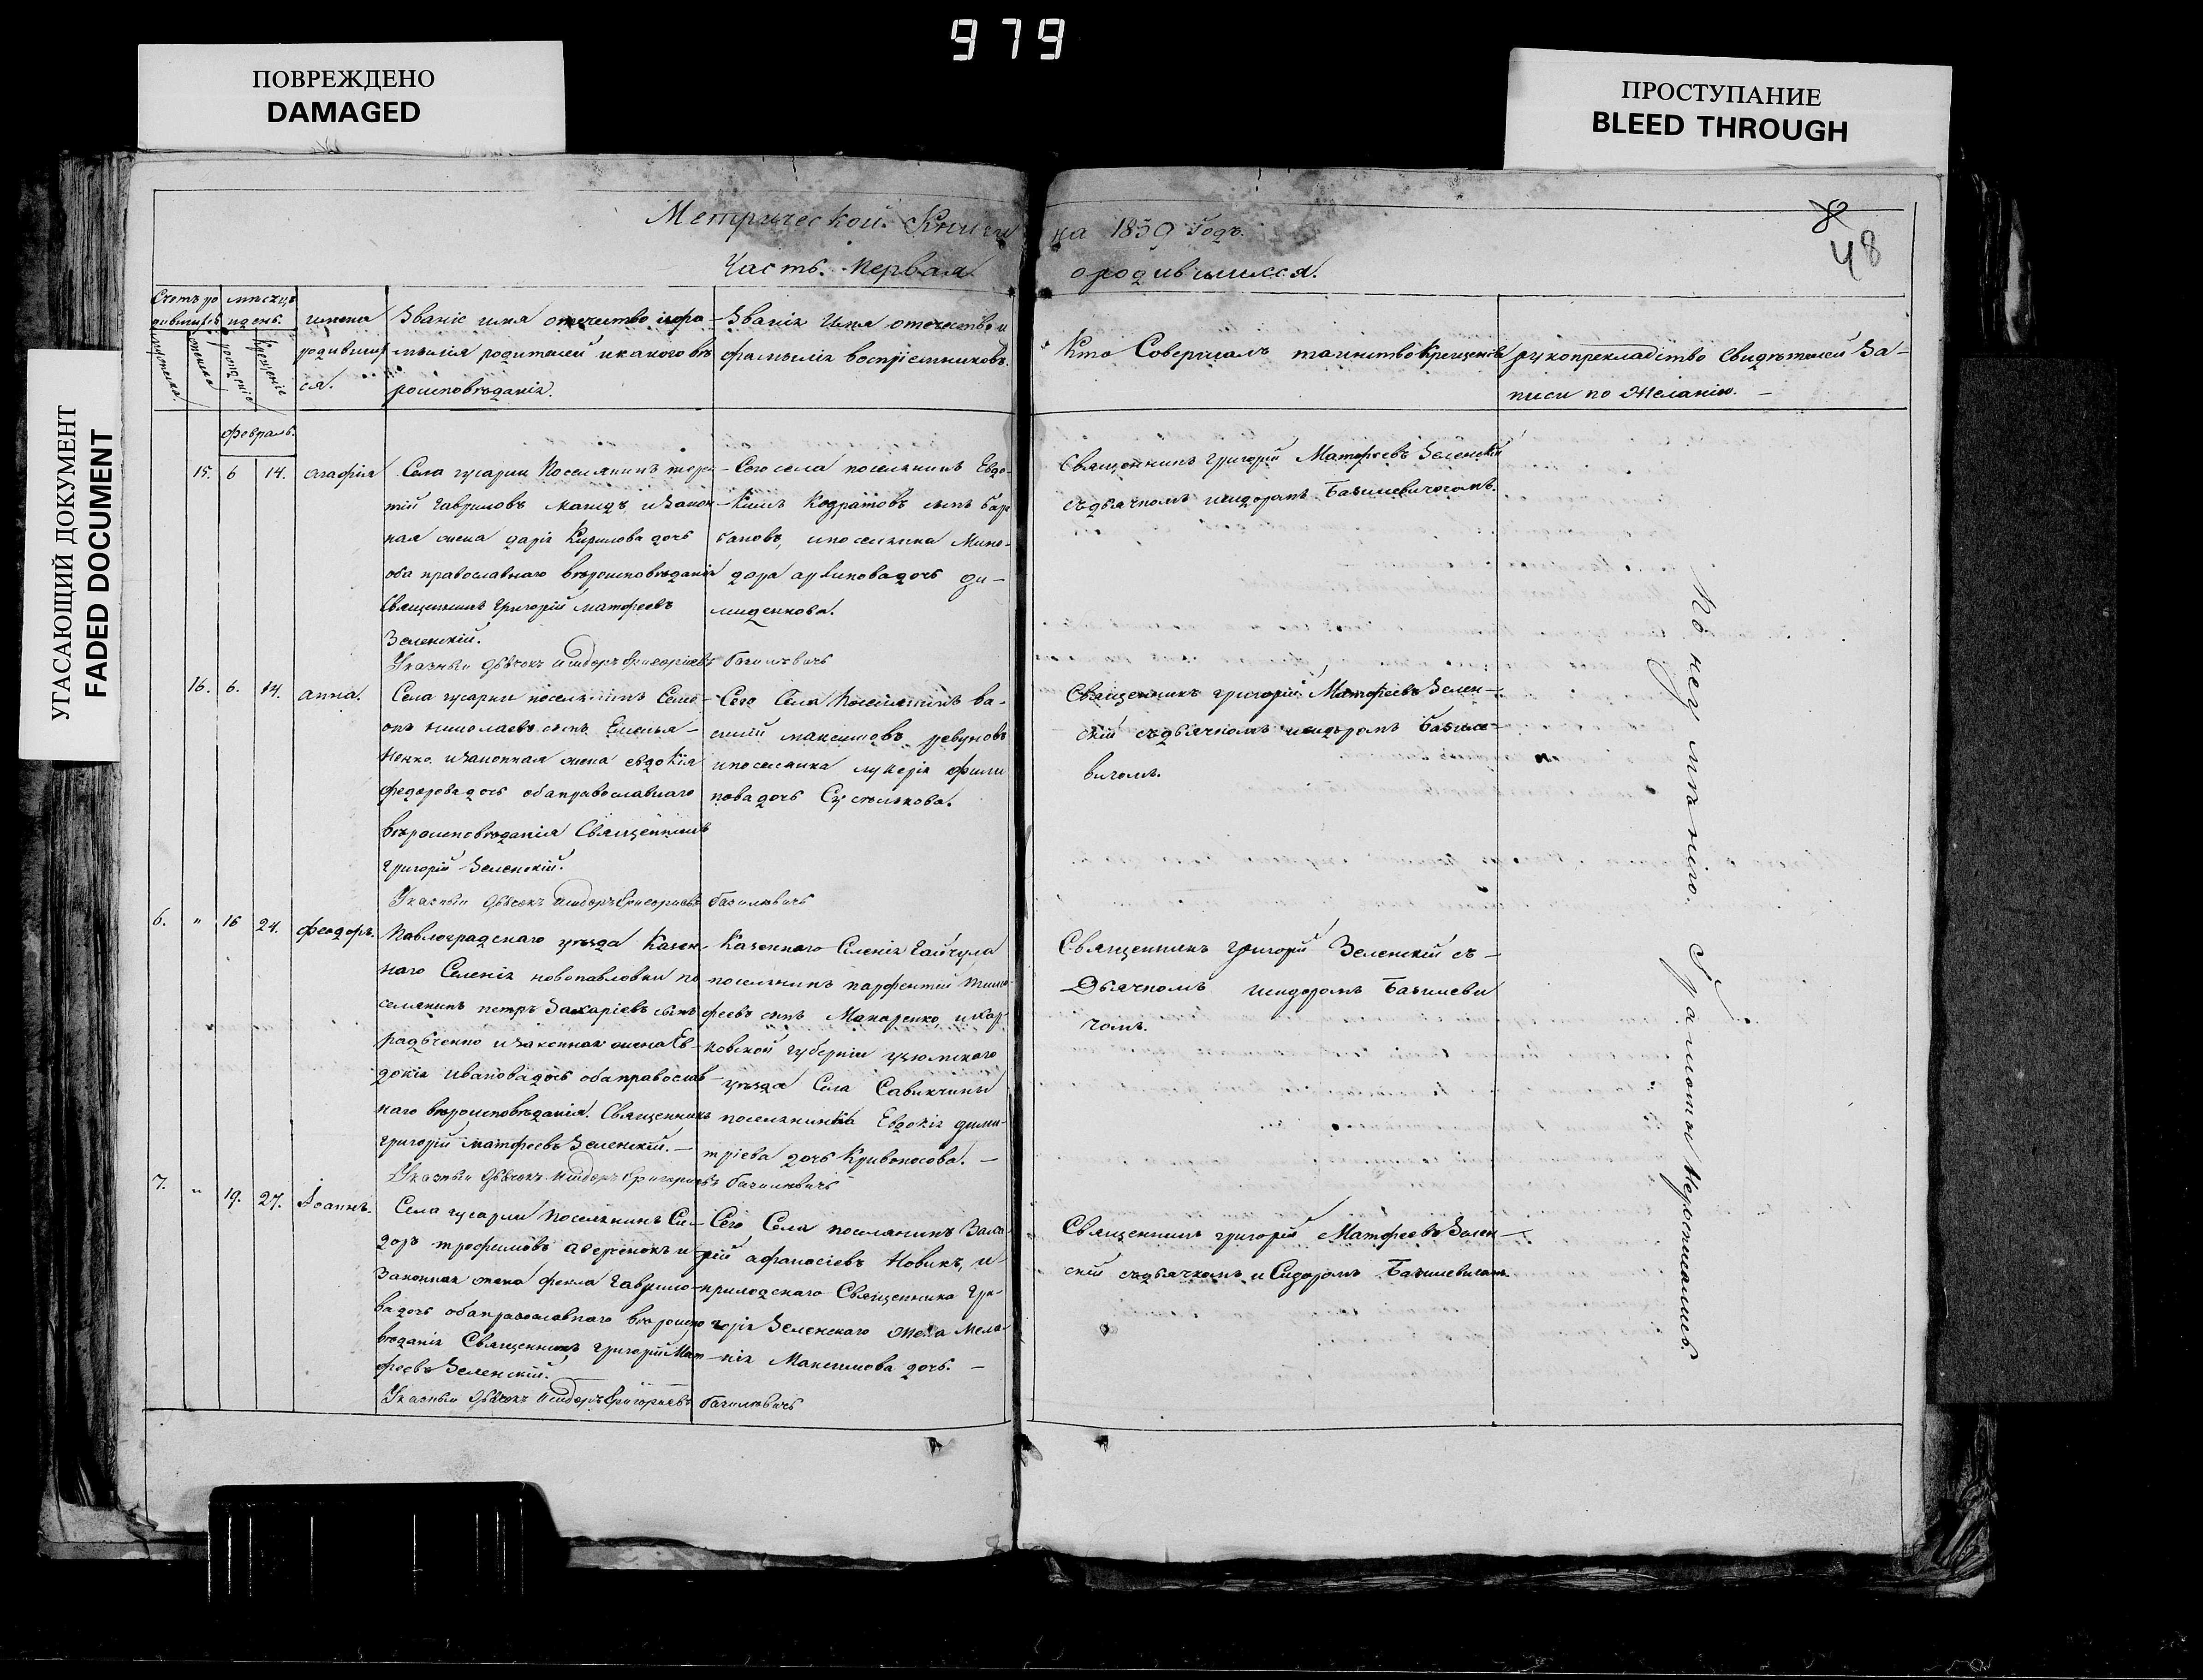 979
ПОВРЕЖДЕНО
DAMAGED
ПРОСТУПАНИЕ
BLEED THROUGH
УГАСАЮЩИЙ ДОКУМЕНТ
FADED DOCUMENT
48
Метрической Книги на 1839 Годъ.
Часть первая ородившихся.
Счетъ ро мѣсяцъ
дившихся идень.
имена
родивших
ся.
Званіе имя отечество ифа-
милія родителей икакого вѣ
роисповѣданія.
Званіе Имя отечество и
фамилія воспріемниковъ.
Кто Совершалъ таинство Крещенія
рукоприкладство Свидѣтелей За-
писи по Желанію.
Февраль.
15. 6 14. агафія
Села гусарки Поселянинъ
тій Гавриловъ изакон-
ная жена дарія Кирилова дочь
оба православнаго вѣроисповѣданія
Священникъ Григорій матфеевъ
Зеленскій.
Указный Дьячокъ Исидоръ Григорьевъ Базилевичь
Сего села поселянинъ Евдо-
кимъ Кодратовъ сынъ
ипоселянка Мино-
дора дочь ди-
миденкова.
Священникъ Григорій Матфеевъ Зеленскій
съдьячкомъ исидоромъ Базилевичомъ.
16. 6. 14. анна.
Села гусарки поселянинъ Семе-
онъ николаевъ сынъ Емелья-
ненко, изаконная жена евдокія
федорова дочь оба православнаго
вѣроисповѣданія Священникъ
Григорій Зеленскій.
Указный Дьячокъ Исидоръ Григорьевъ Базилевичь
Сего Села Поселянинъ ва-
силій максимовъ ревуновъ
ипоселянка лукерія фили
пова дочь
Священникъ григорій Матфеевъ Зелен-
скій съдьячкомъ исидоромъ Базиле-
вичомъ.
6. " 16 24. Феодоръ.
Павлоградскаго уѣзда Казен-
наго Селенія новопавловки по
селянинъ петръ Захаріевъ сынъ
радченко изаконная жена Ев-
докія иванова дочь оба православ-
наго вѣроисповѣданія. Священникъ
григорій матфеевъ Зеленскій.
Указный Дьячокъ Исидоръ Григорьевъ Базилевичь
Казеннаго Селенія Гайчула
поселянинъ парфентій тимо-
феевъ сынъ Макаренко, ихар-
ковской губерніи узюмскаго
уѣзда Села
поселянка Евдокія дими-
тріева дочь Кривоносова.
Священникъ григорій Зеленскій съ-
Дьячкомъ исидоромъ Базилеви
чомъ.
7. " 19. 27. Іоаннъ.
Села гусарки Поселянинъ Си-
доръ трофимовъ и
Законная жена фекла Гаврило-
ва дочь оба православнаго вѣроиспо
вѣданія Священникъ григорій Мат
феевъ Зеленскій.
Указный Дьячокъ Исидоръ Григорьевъ Базилевичь
Сего Села поселянинъ Заха-
рій афанасіевъ Новикъ, и
приходскаго Священника Гри-
горія Зеленскаго жена Мела-
нія Максимова дочь.
Священникъ григорій Матфеевъ Зелен-
скій съдьячкомъ и Сидоромъ Базилевичомъ
По неумѣнію Грамоты Нероспи